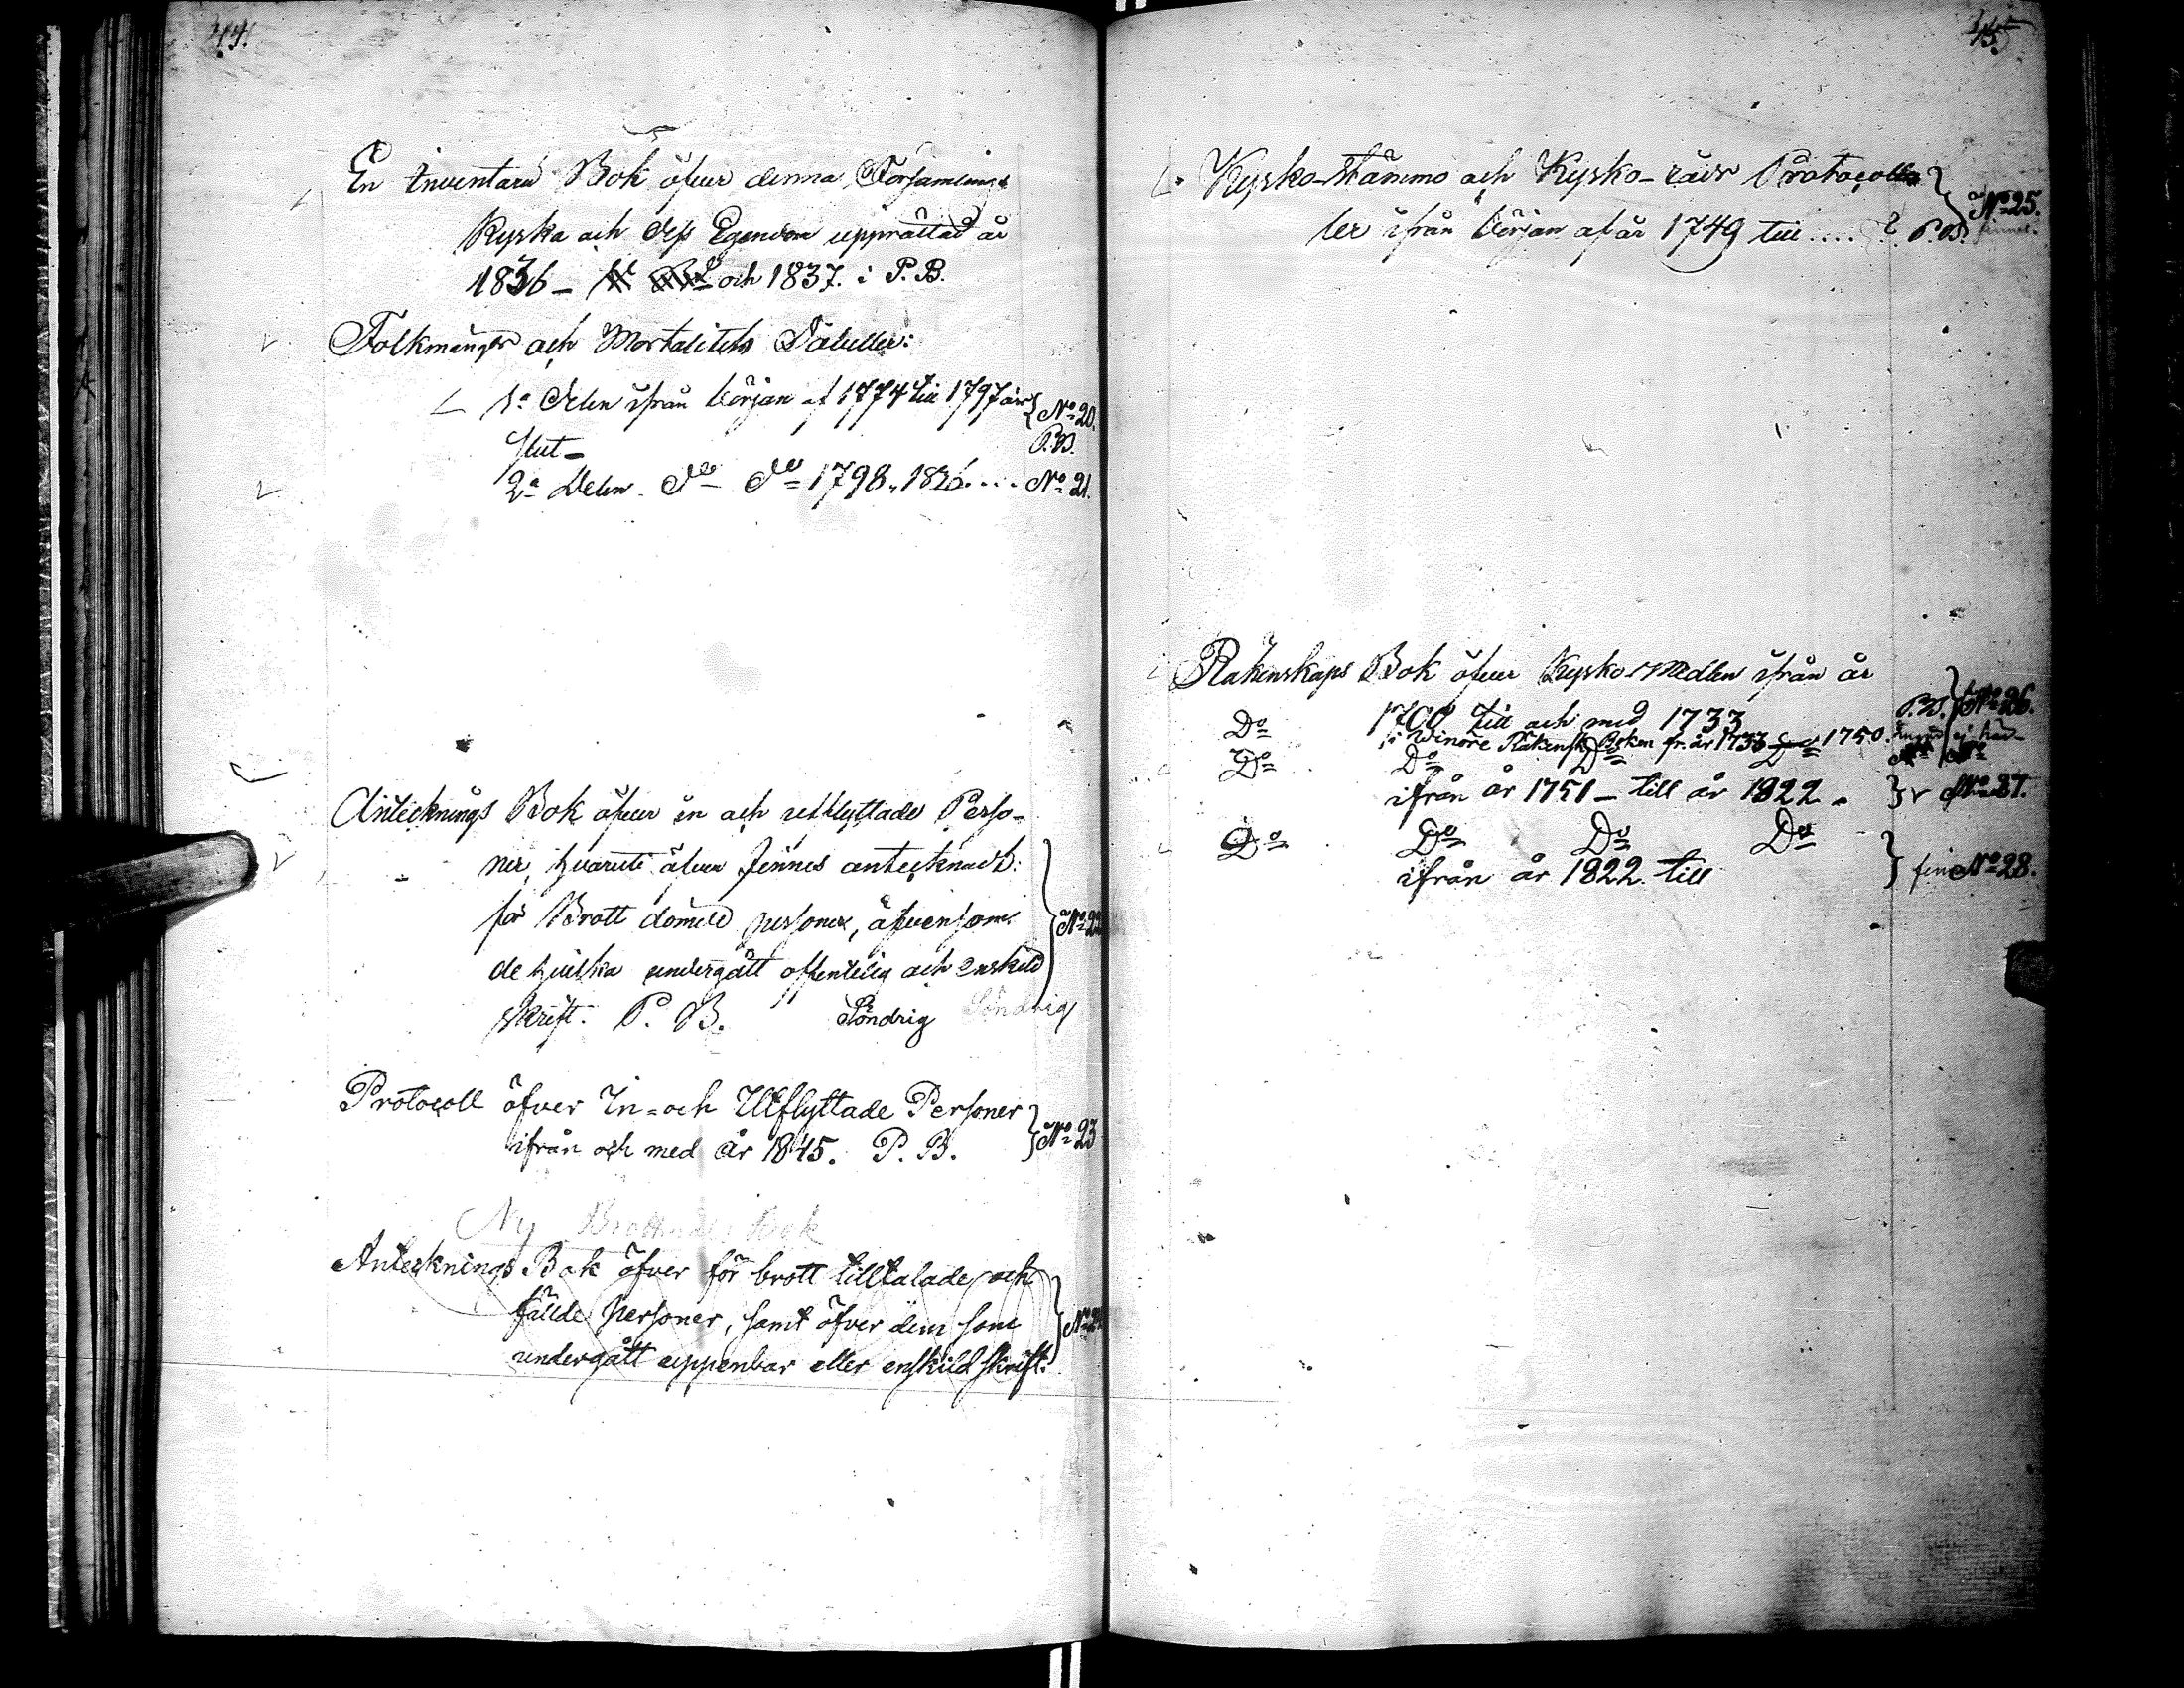 44.
En Inventarii Bok öfver denna Församlings
Kyrka och dess Egendom upprättad år
1836 – och 1837. i P. B.
Folkmängs och Mortalitets Tabeller:
1a Delen ifrån början af 1774 till 1797 års } No 20.
slut – P.B.
2a Delen Do Do 1798, 1836.... No 21.
Antecknings Bok öfver in och utflyttade Perso-
ner, hvaruti äfven finnes antecknadt:
för Brott dömde personer, äfvensom
de hvilka undergått offentelig och enskild
skrift. P. B. Söndrig Söndrig
Protocoll öfver In- och Utflyttade Personer
ifrån och med År 1845. P. B. } No 23
Ny Bok
Antecknings Bok öfver för brott tilltalade och
fällde personer, samt öfver dem som
undergått uppenbar eller enskild skrift.
45.
Kyrko-Stämmo och Kyrko-råds Protocoll
ler ifrån början af år 1749 till .... ? P.B. No 25.
Räkenskaps Bok öfver Kyrko Medlen ifrån år
1700 till och med 1733 P.B. No 26.
Do i Winöre Räkensk. Boken fr. år 1733 1750.
Do Do Do Do
ifrån år 1751 – till år 1822 – } No 27.
Do Do Do Do
ifrån år 1822 till } No 28.